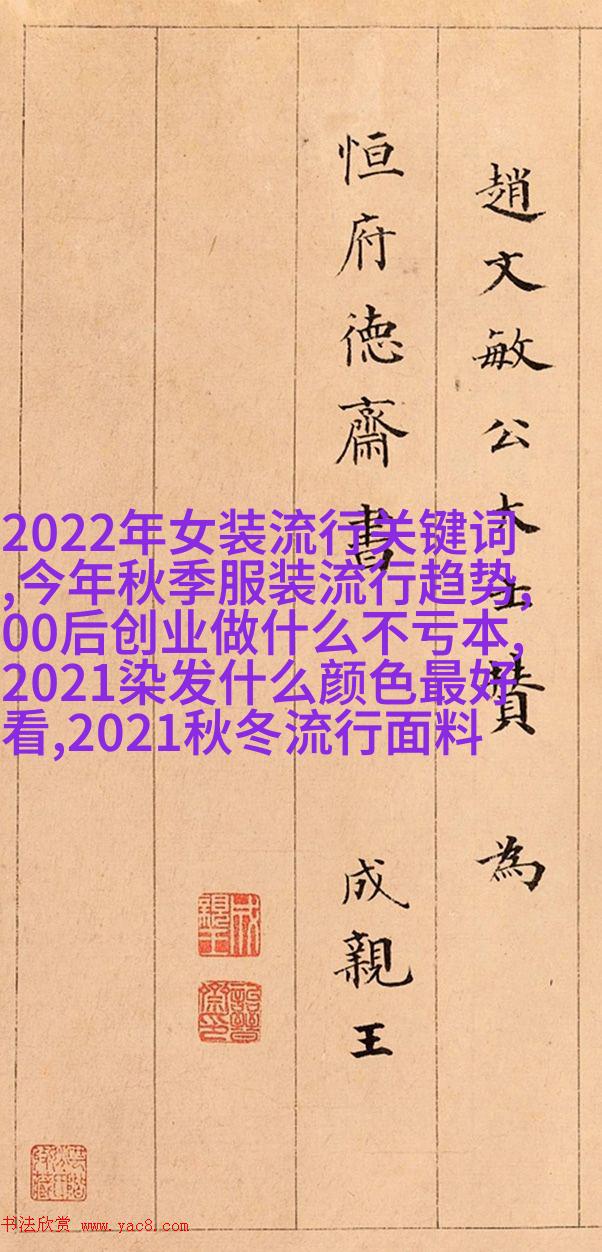 趙文敏公大士贊 為
恒府德齋書 成親王
2022年女装流行关键词
,今年秋季服装流行趋势,
00后创业做什么不亏本,
2021染发什么颜色最好
看,2021秋冬流行面料
成親王
詒晉齋印
书法欣赏 www.yac8.com